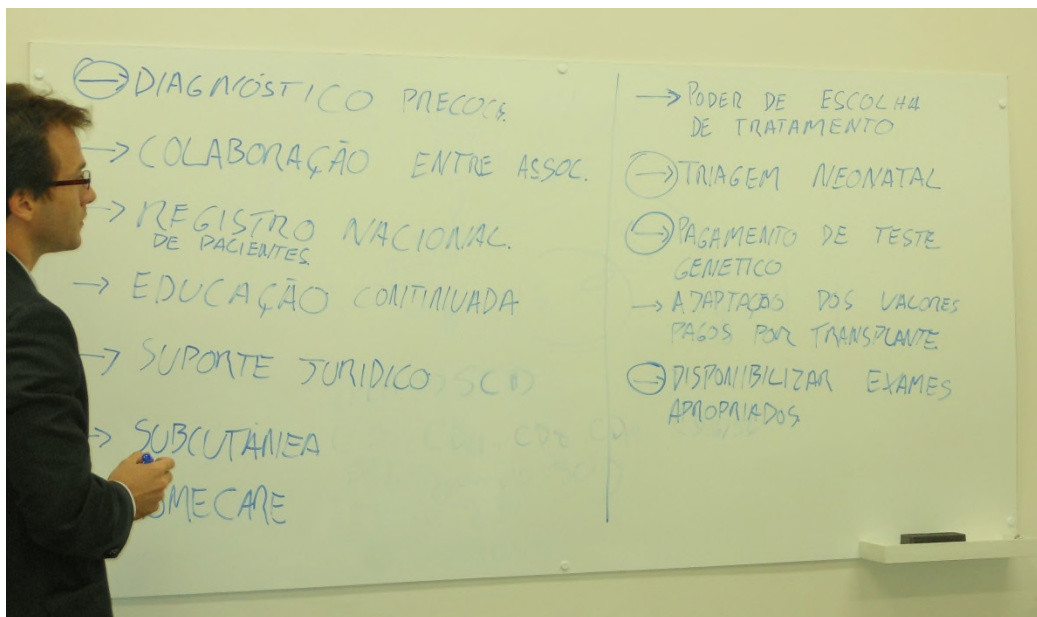 → DIAGNÓSTICO PRECOCE.
→ COLABORAÇÃO ENTRE ASSOC.
→ REGISTRO NACIONAL.
DE PACIENTES.
→ EDUCAÇÃO CONTINUADA
→ SUPORTE JURIDICO
→ SUBCUTÂNEA
→ PODER DE ESCOLHA
DE TRATAMENTO
→ TRIAGEM NEONATAL
→ PAGAMENTO DE TESTE
GENETICO
→ ADAPTAÇÃO DOS VALORES
PAGOS POR TRANSPLANTE.
→ DISPONIBILIZAR EXAMES
APROPRIADOS